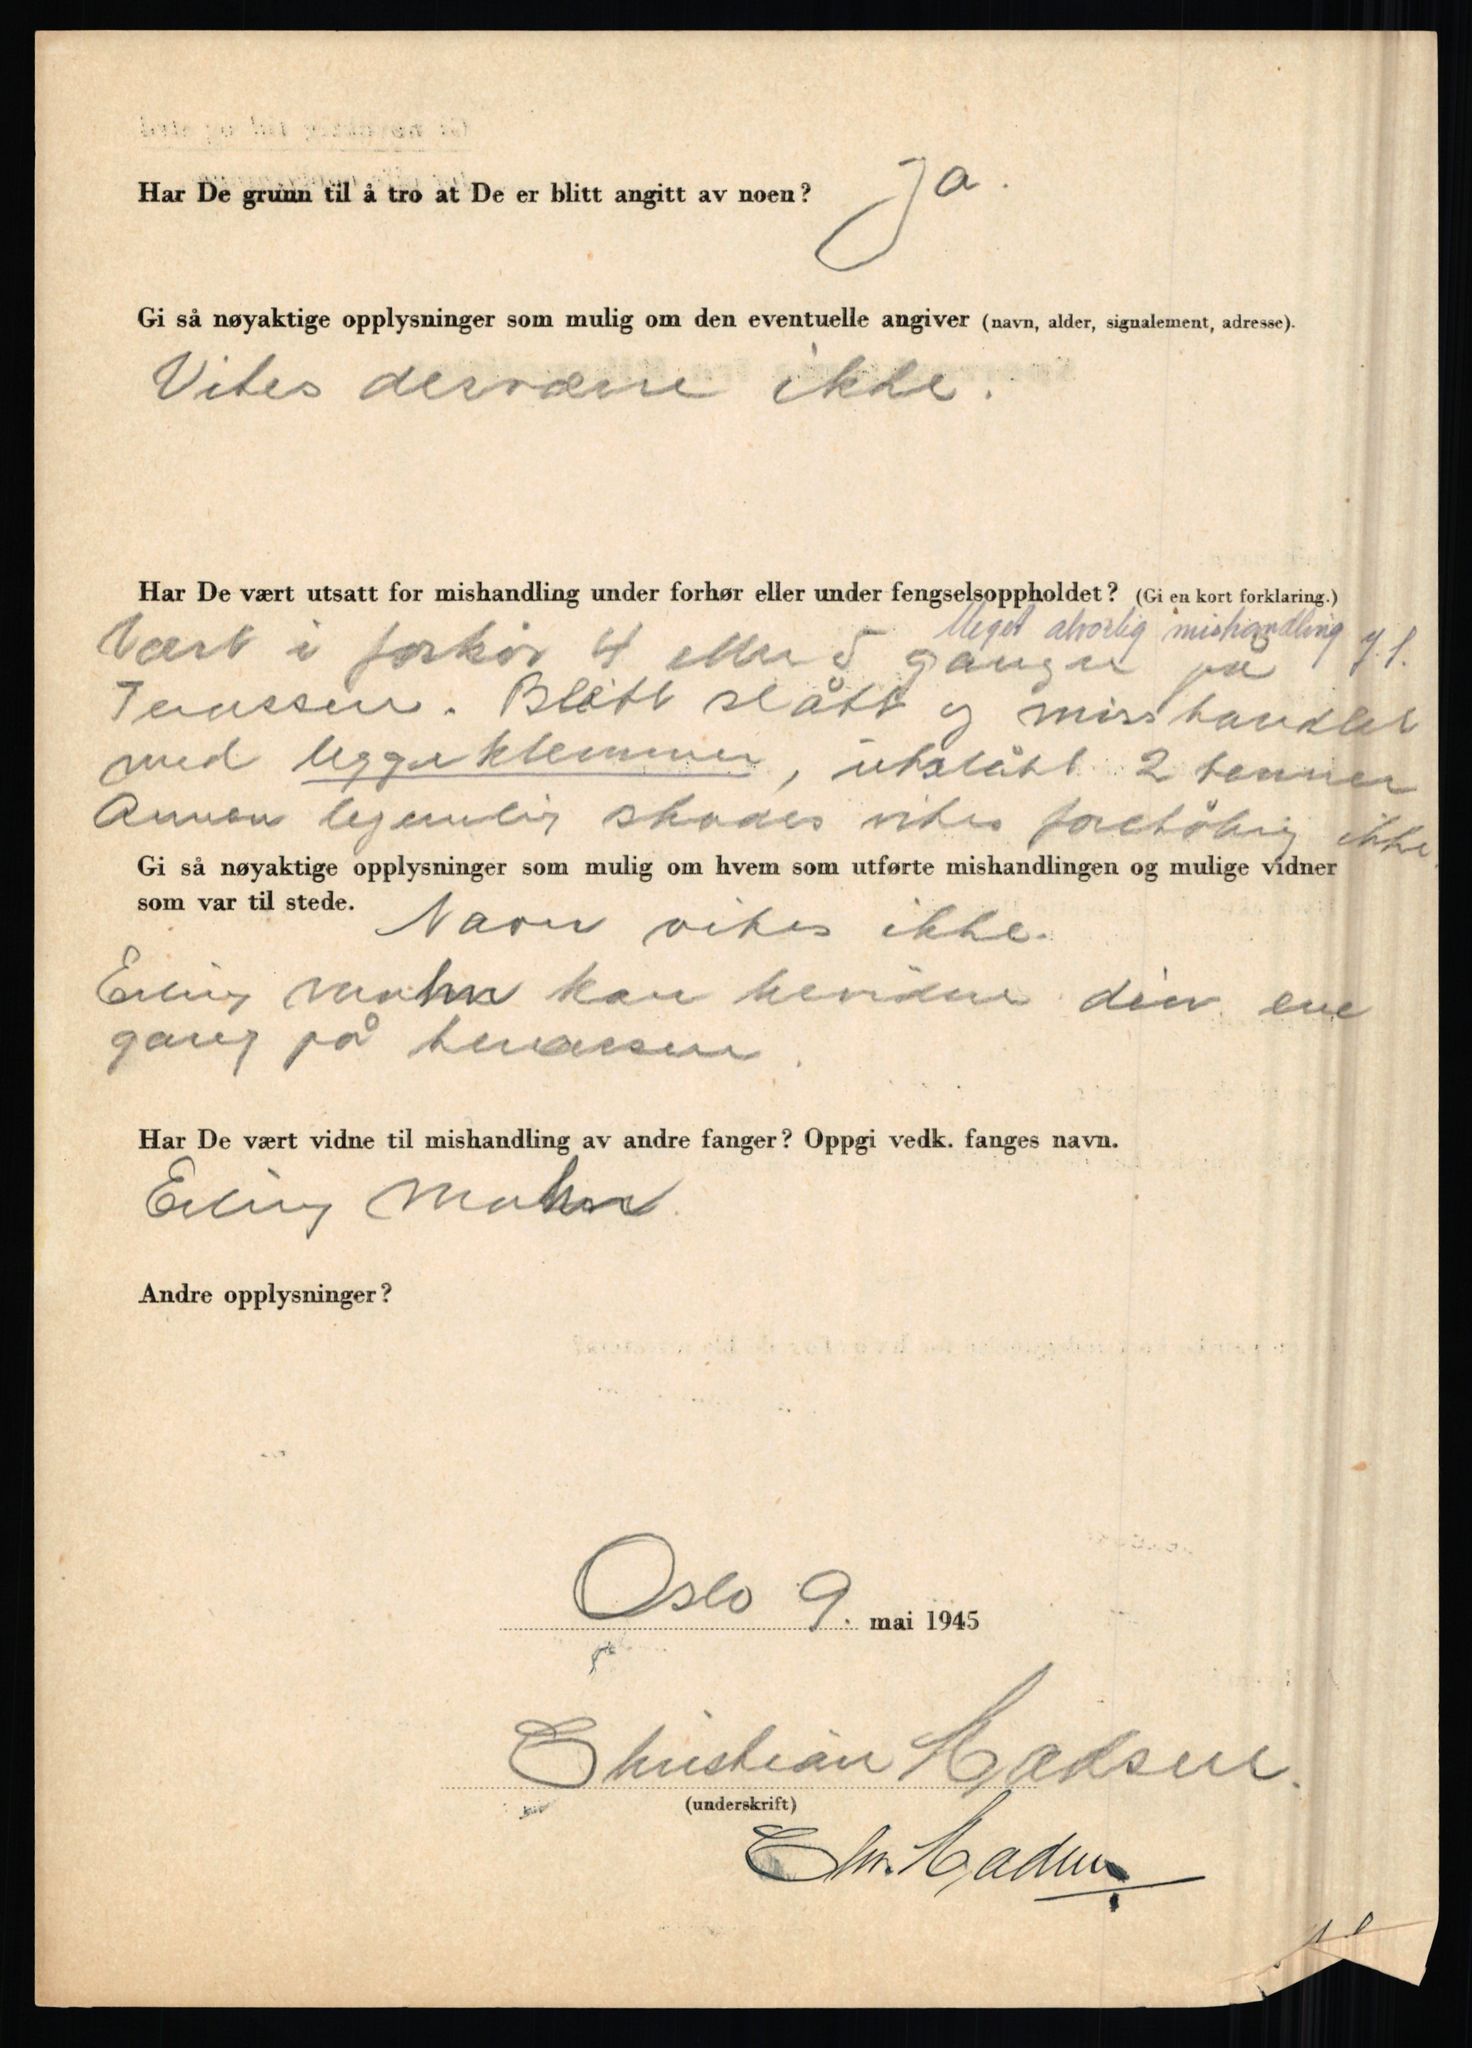 Har De grunn til å tro at De er blitt angitt av noen? Ja.
Gi så nøyaktige opplysninger som mulig om den eventuelle angiver (navn, alder, signalement, adresse).
Vites desværre ikke.
Har De vært utsatt for mishandling under forhør eller under fengselsoppholdet? (Gi en kort forklaring.)
Meget alvorlig mishandling
Vært i forhör 4 eller 5 ganger på
Terassen. Blitt slått og misshandlet
med leggeklemmer, utslått 2 tenner
Annen legemlig skades vites foreløbig ikke.
Gi så nøyaktige opplysninger som mulig om hvem som utførte mishandlingen og mulige vidner
som var til stede.
Navn vites ikke.
Erling Mohn kan bevidne den ene
gang på terassen.
Har De vært vidne til mishandling av andre fanger? Oppgi vedk. fanges navn.
Erling Mohn.
Andre opplysninger?
Oslo 9. mai 1945
Christian Madsen.
(underskrift)
Chr. Madsen